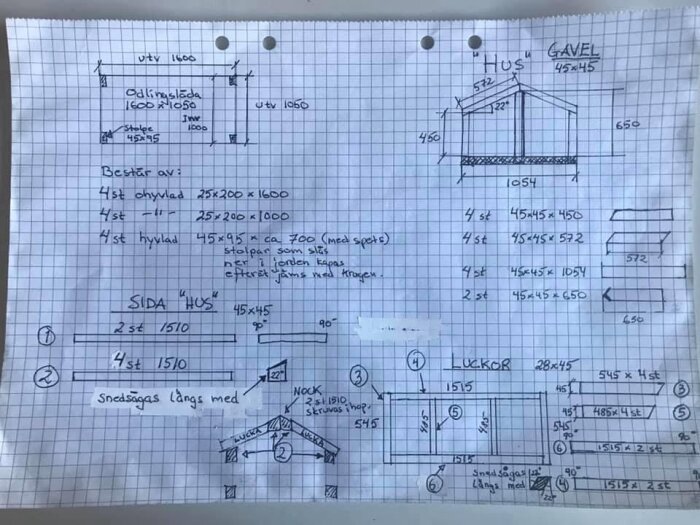 utv 1600
Odlingslåda
1600 x 1050
Inv
1000
Stolpe
45x95
utv 1050
Består av:
4 st ohyvlad 25x200x1600
4 st -"- 25x200x1000
4 st hyvlad 45x95 x ca 700 (med spets)
stolpar som slås
ner i jorden kapas
efteråt jäms med kragen.
"HUS"
GAVEL
45x45
572
22°
450
650
1054
4 st 45x45x450
4 st 45x45x572
572
4 st 45x45x1054
2 st 45x45x650
650
SIDA "HUS" 45x45
1 2 st 1510
90° 90°
2 4 st 1510
22°
Snedsågas långs med
NOCK
2 st 1510
skruvas ihop.
LUCKA
LUCKA
2
LUCKOR 28x45
3
4
1515
545
485
5
485
1515
6
Snedsågas
långs med
22°
22°
545 x 4 st
45
3
45
485 x 4 st
5
545
90° 90°
6 1515 x 2 st
90° 90°
4 1515 x 2 st